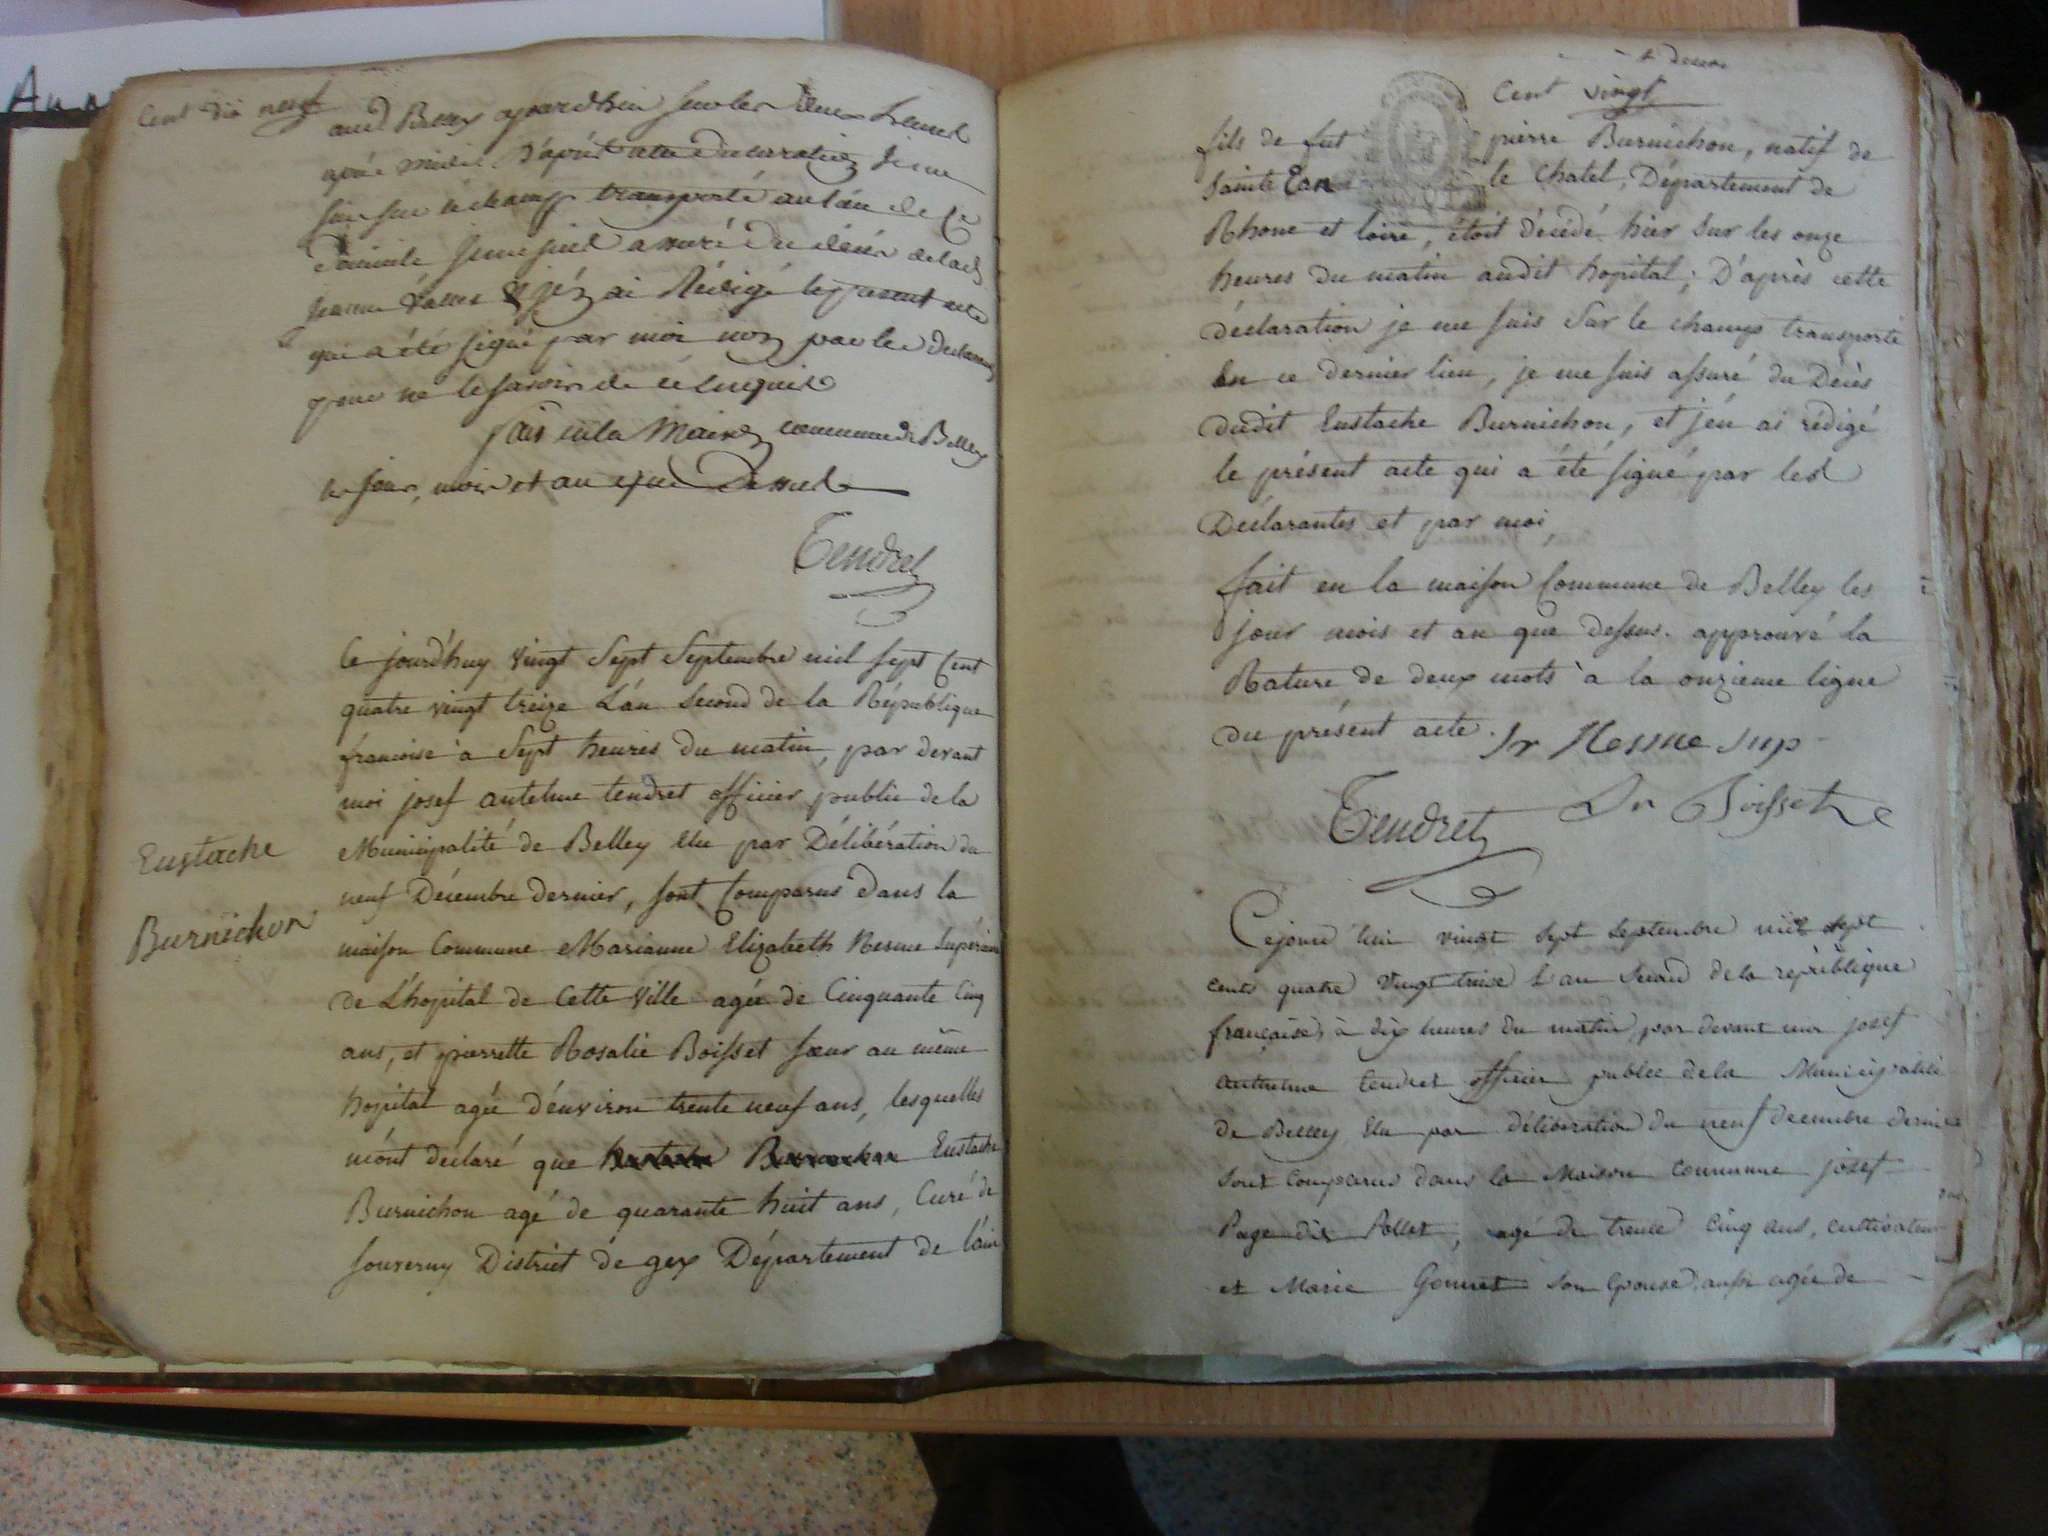 Cent dix neuf
audit Belley aujourdhui sur les deux heures
après midi. D'après cette declaration je me
suis sur le champ transporté au lieu de ce
domicile je me suis assuré du décès de lad.
jeanne et j'en ai Rédigé le present acte
qui a été signé par moi non par le declarant
pour ne le savoir de ce enquis
fait en la Maison commune de Belley
les jour, mois et an que Dessus
Tendret
Ce jourd'huy vingt Sept Septembre mil sept Cent
quatre vingt treize L'an second de la République
francoise à Sept heures du matin, par devant
moi josef antelme tendret officier public de la
Municipalité de Belley élu par Délibération du
neuf Décembre dernier, sont Comparus dans la
maison Commune Marianne Elizabeth Nesme Supérieure
de L'hopital de Cette Ville agée de Cinquante Cinq
ans, et pierrette Rosalie Boisset sœur au même
hopital agée d'environ trente neuf ans, lesquelles
m'ont declaré que Eustache
Burnichon agé de quarante huit ans, Curé de
souverny District de gex Département de l'ain
Eustache
Burnichon
Cent vingt
fils de fut pierre Burnichon, natif de
Sainte le Chatel, Département de
Rhone et loire, étoit décédé hier sur les onze
heures du matin audit hopital; D'après cette
déclaration je me suis sur le champ transporté
en ce dernier lieu, je me suis assuré du Décès
dudit Eustache Burnichon, et j'en ai rédigé
le présent acte qui a été signé par les
Déclarantes et par moi,
fait en la maison Commune de Belley les
jour mois et an que dessus. approuvé la
Rature de deux mots à la onzieme ligne
du présent acte. Sr Nesme sup
Tendret Sr Boisset
Cejourd'hui vingt sept septembre mil sept
cents quatre vingt treise l'an second de la république
française à dix heures du matin par devant moi josef
anthelme tendret officier public de la Municipalité
de Belley élu par délibération du neuf decembre dernier
sont comparus dans la Maison commune josef
Page dit Pollet, agé de trente cinq ans, cultivateur
et Marie son epouse aussi agée de